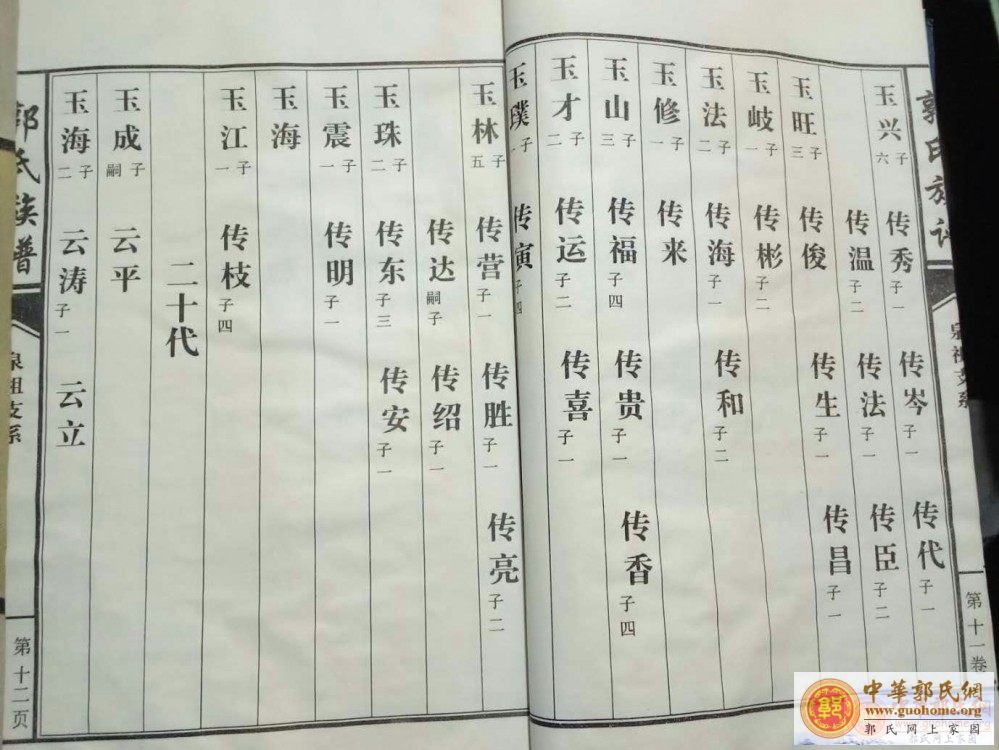 郭氏族谱
泉祖支系
第十一卷
玉兴 六子 传秀 子一 传岑 子一 传代 子一
传温 子二 传法 子一 传臣 子二
玉旺 三子 传俊 传生 子一 传昌 子一
玉岐 一子 传彬 子二
玉法 二子 传海 子一 传和 子二
玉修 一子 传来
玉山 三子 传福 子四 传贵 子一 传香 子四
玉才 二子 传运 子二 传喜 子一
玉璞 子 传寅 子四
玉林 五子 传营 子一 传胜 子一 传亮 子二
传达 嗣子 传绍 子一
玉珠 二子 传东 子三 传安 子一
玉震 一子 传明 子一
玉海
玉江 一子 传枝 子四
二十代
玉成 嗣子 云平
玉海 二子 云涛 子一 云立
郭氏族普
泉祖支系
第十二页
中華郭氏網
www.guohome.org
郭氏网上家园